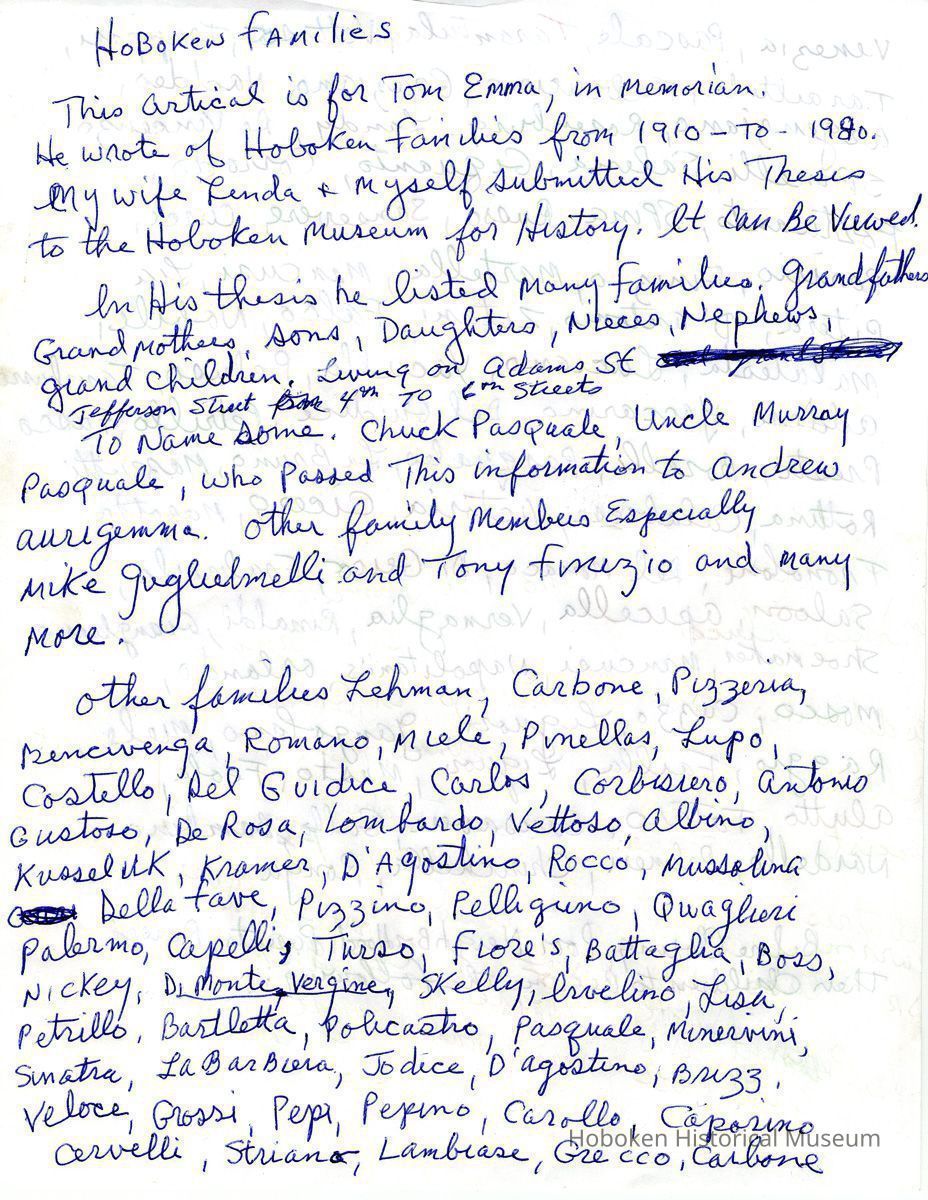 HoBoken Families
This artical is for Tom Emma, in memorian.
He wrote of Hoboken Families from 1910-TO-1980.
My wife Lenda + myself submitted His Thesis
to the Hoboken Museum for History. It can Be Viewed.
In His thesis he listed many families. Grandfathers
Grandmothers, sons, Daughters, Nieces, Nephews,
grand children. Living on Adams St
Jefferson Street from 4th TO 6th Streets
To Name Some. Chuck Pasquale, Uncle Murray
Pasquale, who Passed This information to Andrew
aurigemma. Other family Members Especially
Mike Guglielmelli and Tony Finizio and many
more.
Other families Lehman, Carbone, Pizzeria,
Bencivenga, Romano, Miele, Pinellas, Lupo,
Costello, Del Guidice, Carlos, Corbisiero, Antonio
Gustoso, De Rosa, Lombardo, Vettoso, Albino,
Kussel UK, Kramer, D'Agostino, Rocco, Mussolina
Della Fave, Pizzino, Pelligrino, Qwaglieri
Palermo, Capelli, Turso, Fiore's, Battaglia, Boss,
Nickey, Di Monte Vergine, Skelly, Irvelino, Lisa,
Petrillo, Bartletta, Policastro, Pasquale, Minervini,
Sinatra, LaBarBiera, Jodice, D'agostino, Brizz,
Veloce, Grossi, Pepi, Pepino, Carollo, Caporino
Cervelli, Striano, Lambiase, Grecco, Carbone
Hoboken Historical Museum